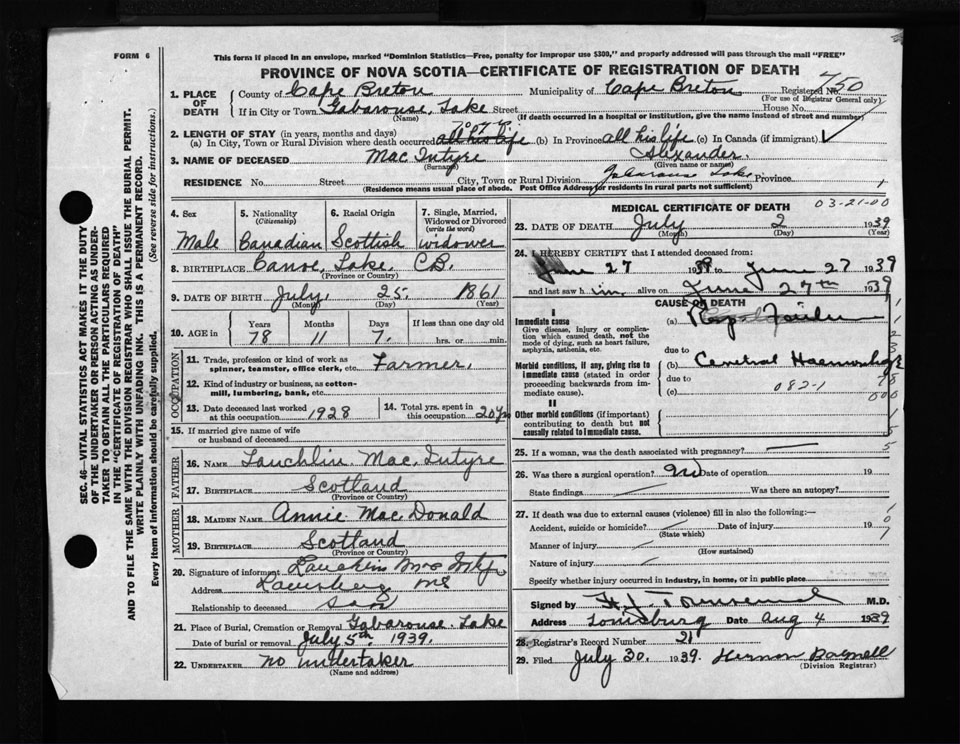 FORM 6
This form if placed in an envelope, marked "Dominion Statistics—Free, penalty for improper use $300," and properly addressed will pass through the mail "FREE"
PROVINCE OF NOVA SCOTIA—CERTIFICATE OF REGISTRATION OF DEATH
SEC. 46—VITAL STATISTICS ACT MAKES IT THE DUTY
OF THE UNDERTAKER OR PERSON ACTING AS UNDER-
TAKER TO OBTAIN ALL THE PARTICULARS REQUIRED
IN THE "CERTIFICATE OF REGISTRATION OF DEATH"
AND TO FILE THE SAME WITH THE DIVISION REGISTRAR WHO SHALL ISSUE THE BURIAL PERMIT.
WRITE PLAINLY WITH UNFADING INK. THIS IS A PERMANENT RECORD.
Every item of information should be carefully supplied. (See reverse side for instructions.)
1. PLACE OF DEATH
County of Cape Breton Municipality of Cape Breton Registered No. 750
(For use of Registrar General only)
If in City or Town Gabarouse Lake Street House No.
(Name) (If death occurred in a hospital or institution, give the name instead of street and number)
2. LENGTH OF STAY (in years, months and days)
(a) In City, Town or Rural Division where death occurred all his life (b) In Province all his life (c) In Canada (if immigrant)
3. NAME OF DECEASED Mac Intyre Alexander
(Surname) (Given name or names)
RESIDENCE No. Street City, Town or Rural Division Gabarouse Lake Province
(Residence means usual place of abode. Post Office Address for residents in rural parts not sufficient)
4. Sex Male
5. Nationality (Citizenship) Canadian
6. Racial Origin Scottish
7. Single, Married, Widowed or Divorced (write the word) widower
8. BIRTHPLACE Canoe Lake C.B.
(Province or Country)
9. DATE OF BIRTH July 25 1861
(Month) (Day) (Year)
10. AGE in Years 78 Months 11 Days 7 If less than one day old hrs. or min.
OCCUPATION
11. Trade, profession or kind of work as spinner, teamster, office clerk, etc. Farmer.
12. Kind of industry or business, as cotton-mill, lumbering, bank, etc.
13. Date deceased last worked at this occupation 1928
14. Total yrs. spent in this occupation 20 yrs
15. If married give name of wife or husband of deceased
FATHER
16. NAME Lauchlin Mac Intyre
17. BIRTHPLACE Scotland
(Province or Country)
MOTHER
18. MAIDEN NAME Annie Mac Donald
19. BIRTHPLACE Scotland
(Province or Country)
20. Signature of informant Lauchlin
Address
Relationship to deceased son
21. Place of Burial, Cremation or Removal Gabarouse Lake
Date of burial or removal July 5th 1939.
22. UNDERTAKER no undertaker
(Name and address)
MEDICAL CERTIFICATE OF DEATH
03-21-00
23. DATE OF DEATH July 2 1939
(Month) (Day) (Year)
24. I HEREBY CERTIFY that I attended deceased from:
June 27 1939 to June 27 1939
and last saw him alive on June 27th 1939
CAUSE OF DEATH
I
Immediate cause
Give disease, injury or complication which caused death, not the mode of dying, such as heart failure, asphyxia, asthenia, etc.
(a)
due to
Morbid conditions, if any, giving rise to immediate cause (stated in order proceeding backwards from immediate cause).
(b) Cerebral Haemorrhage
due to
(c) 082-1
II
Other morbid conditions (if important) contributing to death but not causally related to immediate cause.
25. If a woman, was the death associated with pregnancy?
26. Was there a surgical operation? No Date of operation 19
State findings Was there an autopsy?
27. If death was due to external causes (violence) fill in also the following:—
Accident, suicide or homicide? Date of injury 19
(State which)
Manner of injury
(How sustained)
Nature of injury
Specify whether injury occurred in industry, in home, or in public place
Signed by M.D.
Address Louisburg Date Aug 4 1939
28. Registrar's Record Number 21
29. Filed July 30. 1939. Bagnell
(Division Registrar)